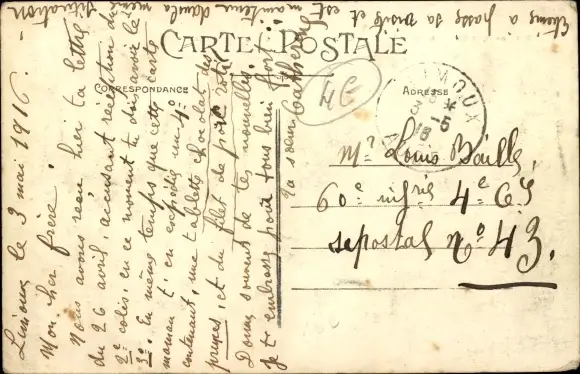 CARTE POSTALE
CORRESPONDANCE
ADRESSE
Limoux le 3 mai 1916.
Mon cher frère,
Nous avons reçu hier ta lettre
du 26 avril, accusant réception du
2e colis, en ce moment tu dois avoir le
3e. En même temps que cette carte
maman t'en expédie un 4e
contenant, une tablette chocolat des
prunes, et du filet de porc roti.
Donne souvent de tes nouvelles.
Je t'embrasse pour tous bien fort.
Ta sœur Catherine
Etienne a passé sa visite et est maintenu dans la même situation.
4e
LIMOUX
Mr Louis Baillé,
60e infrie 4e Cie
sepostal No 43.